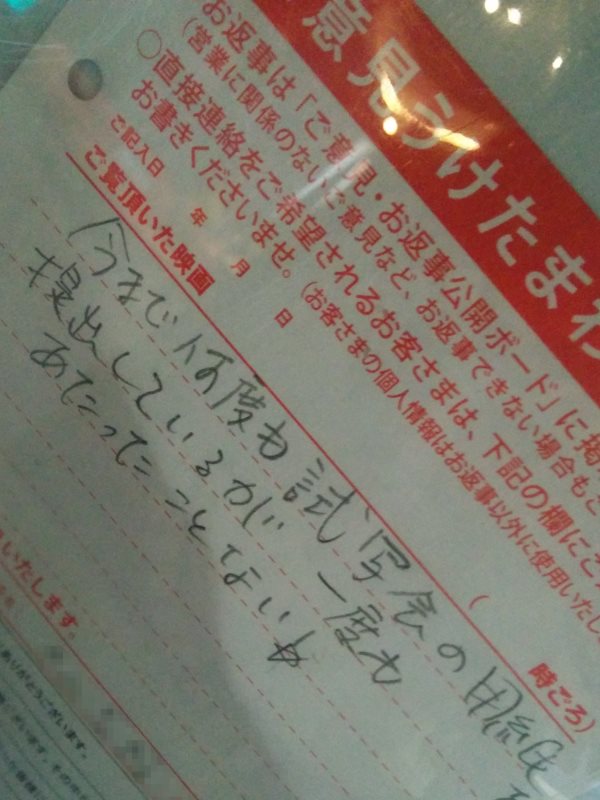 意見うけたまわ
お返事は「ご意見・お返事公開ボード」に掲
(営業に関係のないご意見など、お返事できない場合もご
○直接連絡をご希望されるお客さまは、下記の欄にご
お書きくださいませ。(お客さまの個人情報はお返事以外に使用いたし
ご記入日 年 月 日
ご覧頂いた映画 ( 時ごろ)
今まで何度も試写会の用紙を
提出しているが一度も
あたったことないぬ
いたします。
ありがとうございます。